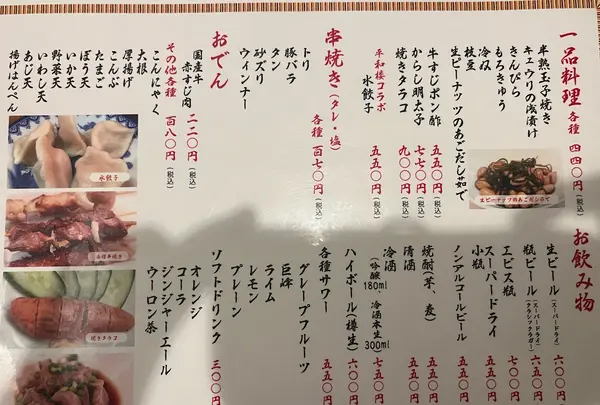 一品料理 各種 四四〇円(税込)
半熟玉子焼き
キュウリの浅漬け
きんぴら
もろきゅう
冷奴
枝豆
生ピーナッツのあごだし茹で
牛すじポン酢 五五〇円(税込)
からし明太子 七七〇円(税込)
焼きタラコ 九〇〇円(税込)
平和楼コラボ
水餃子 五五〇円(税込)
串焼き(タレ・塩) 各種 百七〇円(税込)
トリ
豚バラ
タン
砂ズリ
ウィンナー
おでん
国産牛
赤すじ肉 二二〇円(税込)
その他各種 百八〇円(税込)
こんにゃく
大根
厚揚げ
こんぶ
たまご
ぼう天
いか天
野菜天
いわし天
あじ天
揚げはんぺん
生ピーナッツのあごだし茹で
水餃子
各種串焼き
焼きタラコ
お飲み物
生ビール(スーパードライ) 六〇〇円
瓶ビール(スーパードライ)(クラシックラガー) 六〇〇円
エビス瓶 七〇〇円
スーパードライ
小瓶 五五〇円
ノンアルコールビール 五五〇円
焼酎(芋、麦) 五五〇円
清酒 五五〇円
冷酒 七五〇円
(吟醸180ml 冷酒本生300ml)
ハイボール(樽生) 五五〇円
各種サワー 五五〇円
グレープフルーツ
巨峰
ライム
レモン
プレーン
ソフトドリンク 三〇〇円
オレンジ
コーラ
ジンジャーエール
ウーロン茶